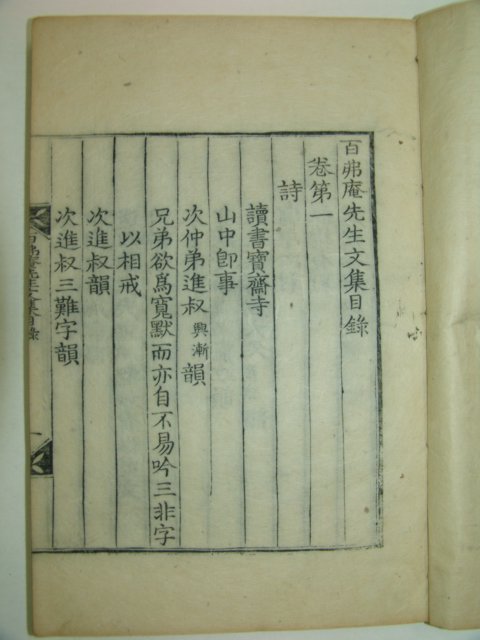 百弗庵先生文集目錄
卷第一
詩
讀書寶齋寺
山中卽事
次仲弟進叔興漸韻
兄弟欲爲寬默而亦自不易吟三非字
以相戒
次進叔韻
次進叔三難字韻
百弗庵先生文集目錄
一